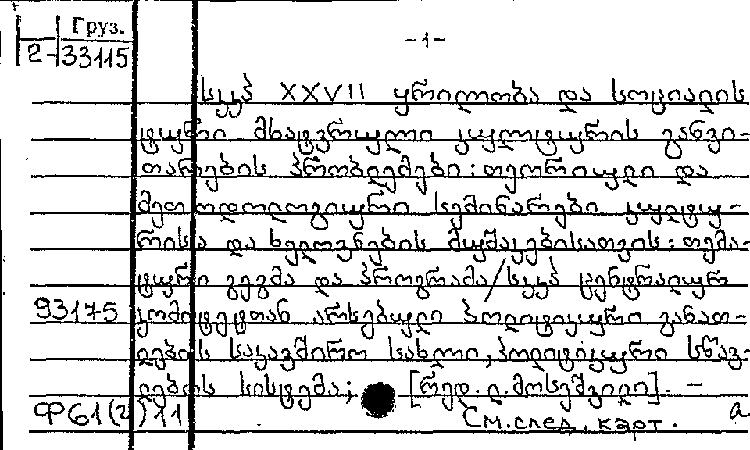 Груз.
2-33115
-1-
სკკპ XXVII ყრილობა და სოციალის
ტური მხატვრული კულტურის განვი-
თარების პრობლემები: თეორიული და
მეთოდოლოგიური სემინარები კულტუ-
რისა და ხელოვნების მუშაკებისათვის: თემა-
ტური გეგმა და პროგრამა/სკკპ ცენტრალურ
93175 კომიტეტთან არსებული პოლიტიკური განათ-
ლების საკავშირო სახლი, პოლიტიკური სწავ-
ლების სისტემა; [რედ. ი. მოსეშვილი]. -
Ф61(2)11 См. след. карт. а